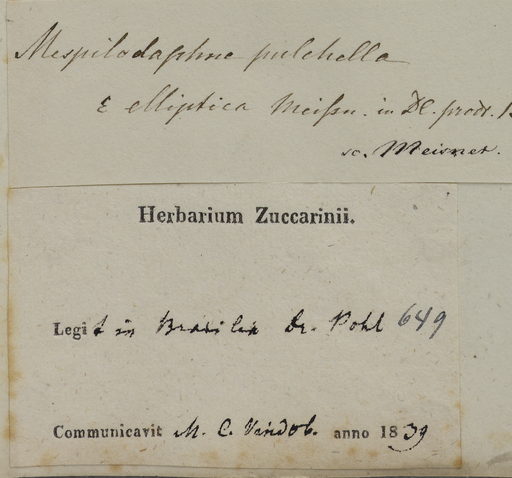 Mespilodaphne pulchella
ε elliptica Meißn. in DC. prodr. 15
sc. Meisner.
Herbarium Zuccarinii.
Legit in Brasilia Dr. Pohl 649
Communicavit M. C. Vindob. anno 1839